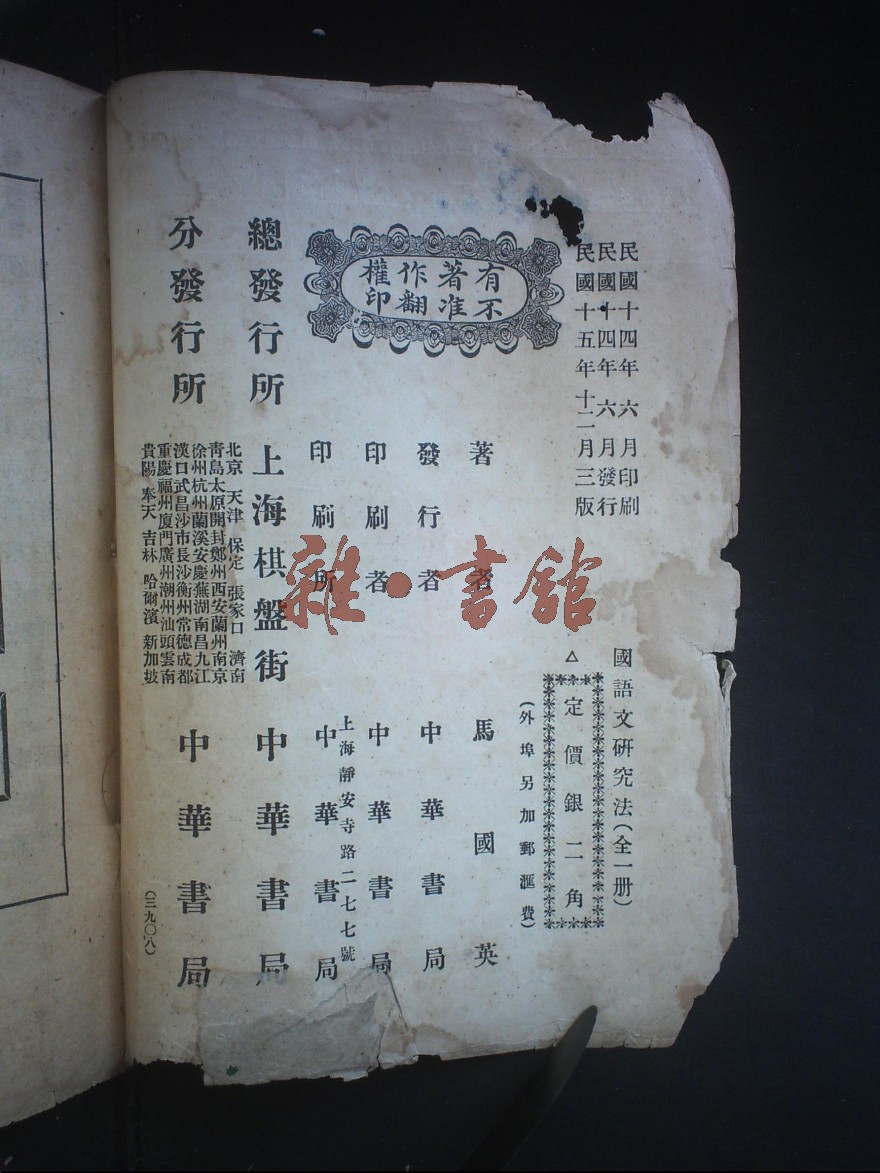 民國十四年六月印刷
民國十四年六月發行
民國十五年十二月三版
國語文研究法(全一册)
△定價銀二角
(外埠另加郵滙費)
有著作權
不准翻印
著者 馬國英
發行者 中華書局
印刷者 中華書局
印刷所 上海靜安寺路二七七號
中華書局
總發行所 上海棋盤街 中華書局
分發行所 中華書局
北京 天津 保定 張家口 濟南
靑島太原開封鄭州西安蘭州南京
徐州杭州蘭溪安慶蕪湖南昌九江
漢口武昌沙市長沙衡州常德成都
重慶福州廈門廣州潮州汕頭雲南
貴陽 奉天 吉林 哈爾濱 新加坡
(三九〇八)
雜·書館